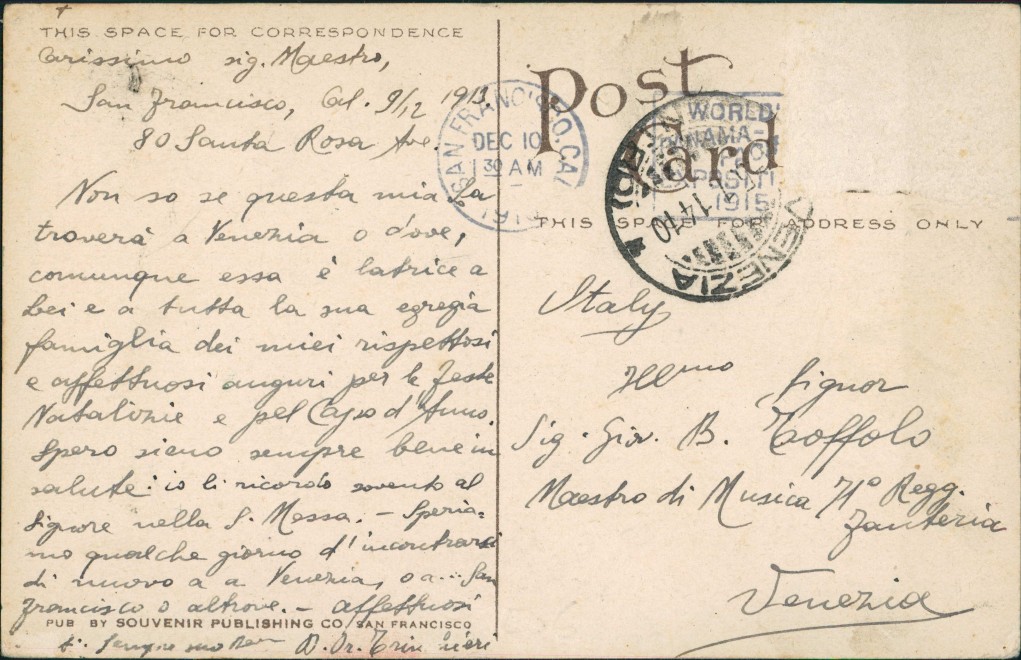 THIS SPACE FOR CORRESPONDENCE
Carissimo sig. Maestro,
San Francisco, Cal. 9/12 1913.
80 Santa Rosa Ave.
Non so se questa mia La
troverà a Venezia o dove,
comunque essa è latrice a
Lei e a tutta la sua egregia
famiglia dei miei rispettosi
e affettuosi auguri per le feste
Natalizie e pel Capo d'Anno.
Spero sieno sempre bene in
salute: io li ricordo sovente al
Signore nella S. Messa. - Speria-
mo qualche giorno d'incontrarci
di nuovo a a Venezia, o a... San
Francisco o altrove. - affettuosi
PUB BY SOUVENIR PUBLISHING CO. SAN FRANCISCO
sempre suo
D. Dr.
Post Card
SAN FRANCISCO, CAL.
DEC 10
30 AM
WORLD'
PANAMA-
1915
VENEZIA
THIS SPACE FOR ADDRESS ONLY
Italy
Illmo Signor
Sig. Giov. B. Toffolo
Maestro di Musica 71° Regg.
Fanteria
Venezia